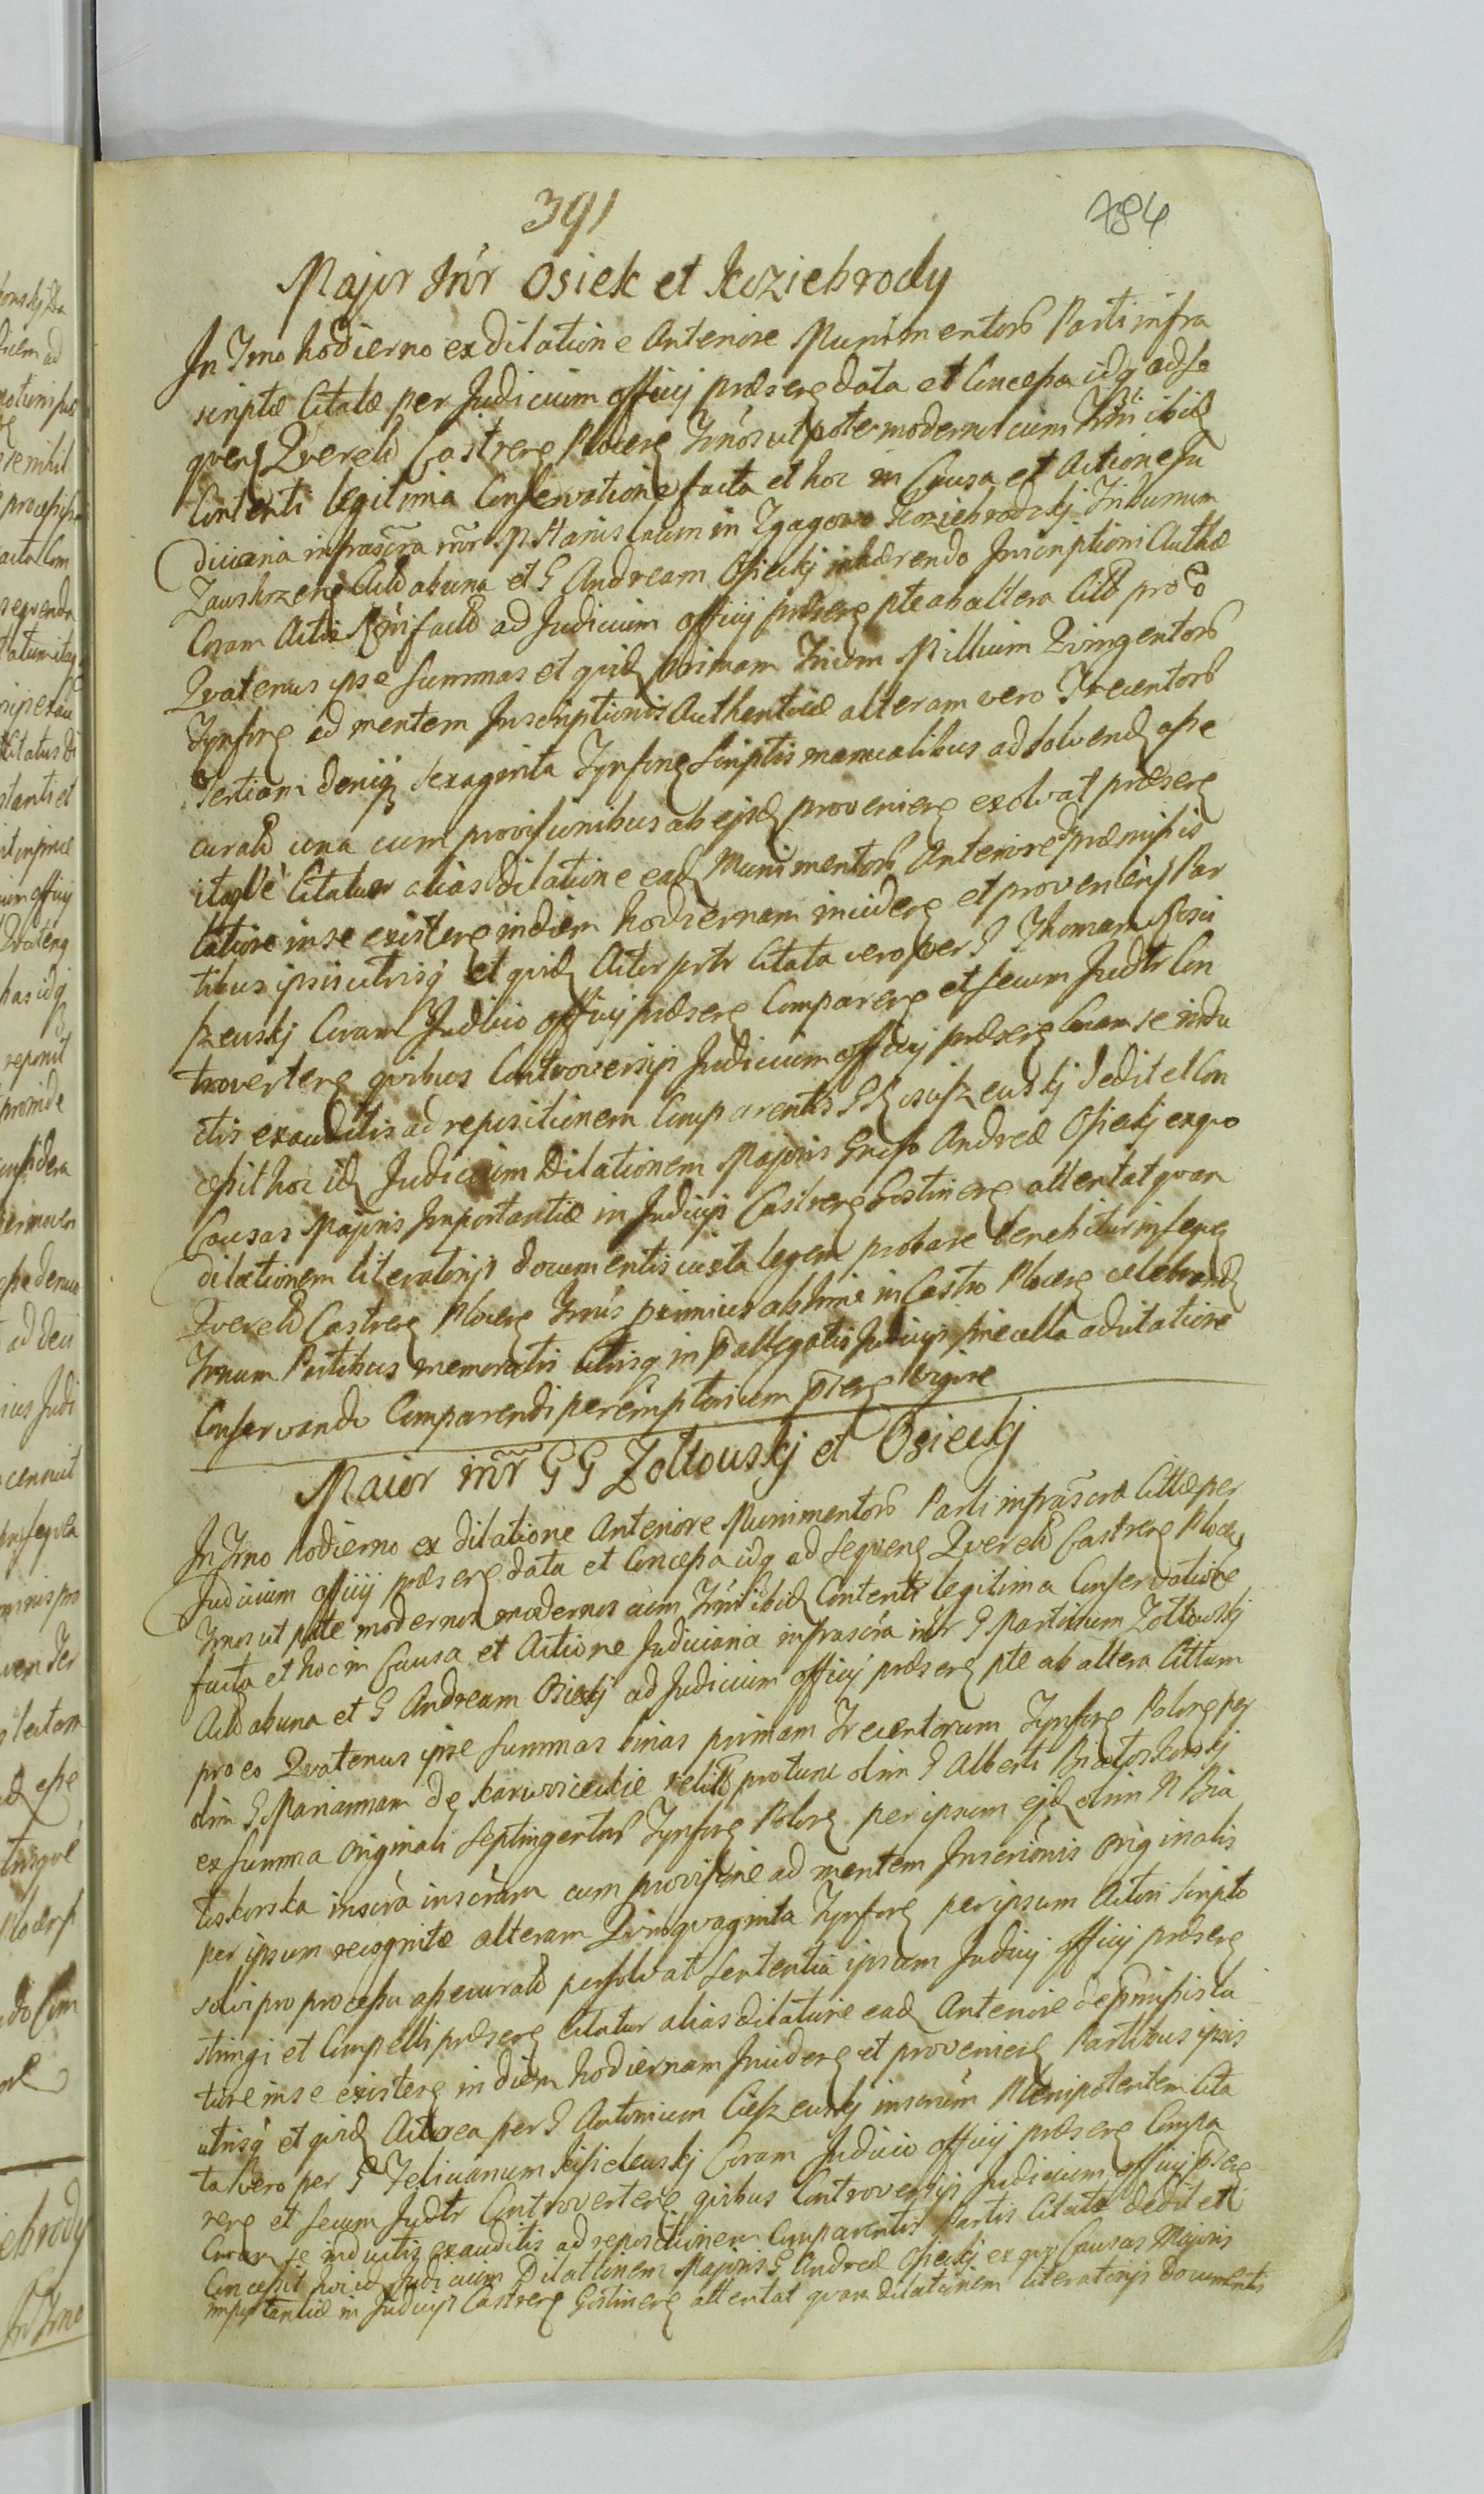 391
784
Major Inr Osiek et Koziebrody
In Trno hodierno ex dilatione Anteriore Munimentorb Parti infra
scriptæ Citatæ per Judicium officij præseng data et Concessa idq adse
queng Querelb Castreng Plocens Trnos ut pote modernos cum Trni ibid
Contenti legitima Conservatione facta et hoc in Causa et Actione Ju
diciaria infrascra inr P Stanislaum in Zgagowo Koziebrodzkj Tribunum
Zawskrzeng Actb ab una et G Andream Osieckj inhærendo Inscriptioni Authæ
Coram Actis factb ad Judicium officij præseng pte ab altera Citb pro Eo
Quatenus ipse Summas et quid primam Trium Millium Quingentorb
Tynforg ad mentem Inscriptionis Authenticæ alteram vero Trecentorb
Tertiam deniq sexaginta Tynforg Scriptis manualibus ad solvend asse
curatb una cum provisionibus ab ejsd proveniens exolvat præseng
itaqVe Citatur alias dilatione ead Munimentorb Anteriore de præmissis
latiore in se existeng in diem hodiernam incideng et provenieng Par
tibus ipsis utrisq et quid Actor prtr Citata vero per G Thomam Rosci
szewskj Coram Judicio officij præseng Compareng et secum Judtr Con
troverteng quibus Controversijs Judicium officij præseng Coram se indu
ctis exauditis ad repositionem Comparentis G Rosciszewskj dedit et Con
cessit hoc id Judicium Dilationem Majoris Gnrso Andreæ Osieckj ex quo
Causas Majoris Importantiæ in Judicijs Castreng Gostineng attentat quam
dilationem literatorijs documentis iuxta legem probare tenebitur in seqng
Querelb Castreng Plocens Trnis primius ab hinc in Castro Plocens celebrand
Trnum Partibus memoratis Utrisq in pallegatis Judicijs sine ulla aduitatione
Conservando Comparendi peremptorium pseng Vigore
Maior inr G G Zołtowskj et Osieckj
In Trno hodierno ex dilatione Anteriore Munimentorb Parti infrascræ Cittæ per
Judicium officij præseng data et Concessa idq ad Sequeng Querelb Castreng Plocens
Trnos ut pote modernos modernos cum Trni ibid Contenti legitima Conservatione
facta et hoc in Causa et Actione Judiciaria infrascra inr G Martinum Zołtowskj
Actb ab una et G Andream Osieckj ad Judicium officij præseng pte ab altera Cittum
pro eo Quatenus ipse Summas binas primam Trecentorum Tynforg Polorg per
olim G Mariannam de Karwosieckie relictb pro tunc olim G Alberti Białoskorskj
ex Summa Originali Septingentorb Tynforg Polorg per ipsum ejsd olim N Bia
łoskorska inscra inscram cum provisione ad mentem Inscrionis Originalis
per ipsum recognitæ alteram Quinquaginta Tynforg per ipsum Actori Scripto
solvi pro processu assecuratb persolvat Sententia ipsum Judicij officij præseng
stringi et Compelli præseng Citatur alias dilatione ead Anteriore de pmissis la
tiore in se existeng in diem hodiernam Incideng et provenieng Partibus ipsis
utrisq et quid Actorea per G Antonium Cieszewskj inscrium Plenipotentem Cita
ta Vero per G Felicianum Kisielewskj Coram Judicio officij præseng Compa
reng et secum Judtr Controverteng quibus Controversijs Judicium officij pseng
Coram se inductis exauditis ad repositionem Comparentis Partis Citatæ dedit et
Concessit hoc id Judicium Dilationem Majoris G Andreæ Osieckj ex quo Causas Majoris
importantiæ in Judicijs Castreng Gostineng attentat quam dilationem literatorijs documentis